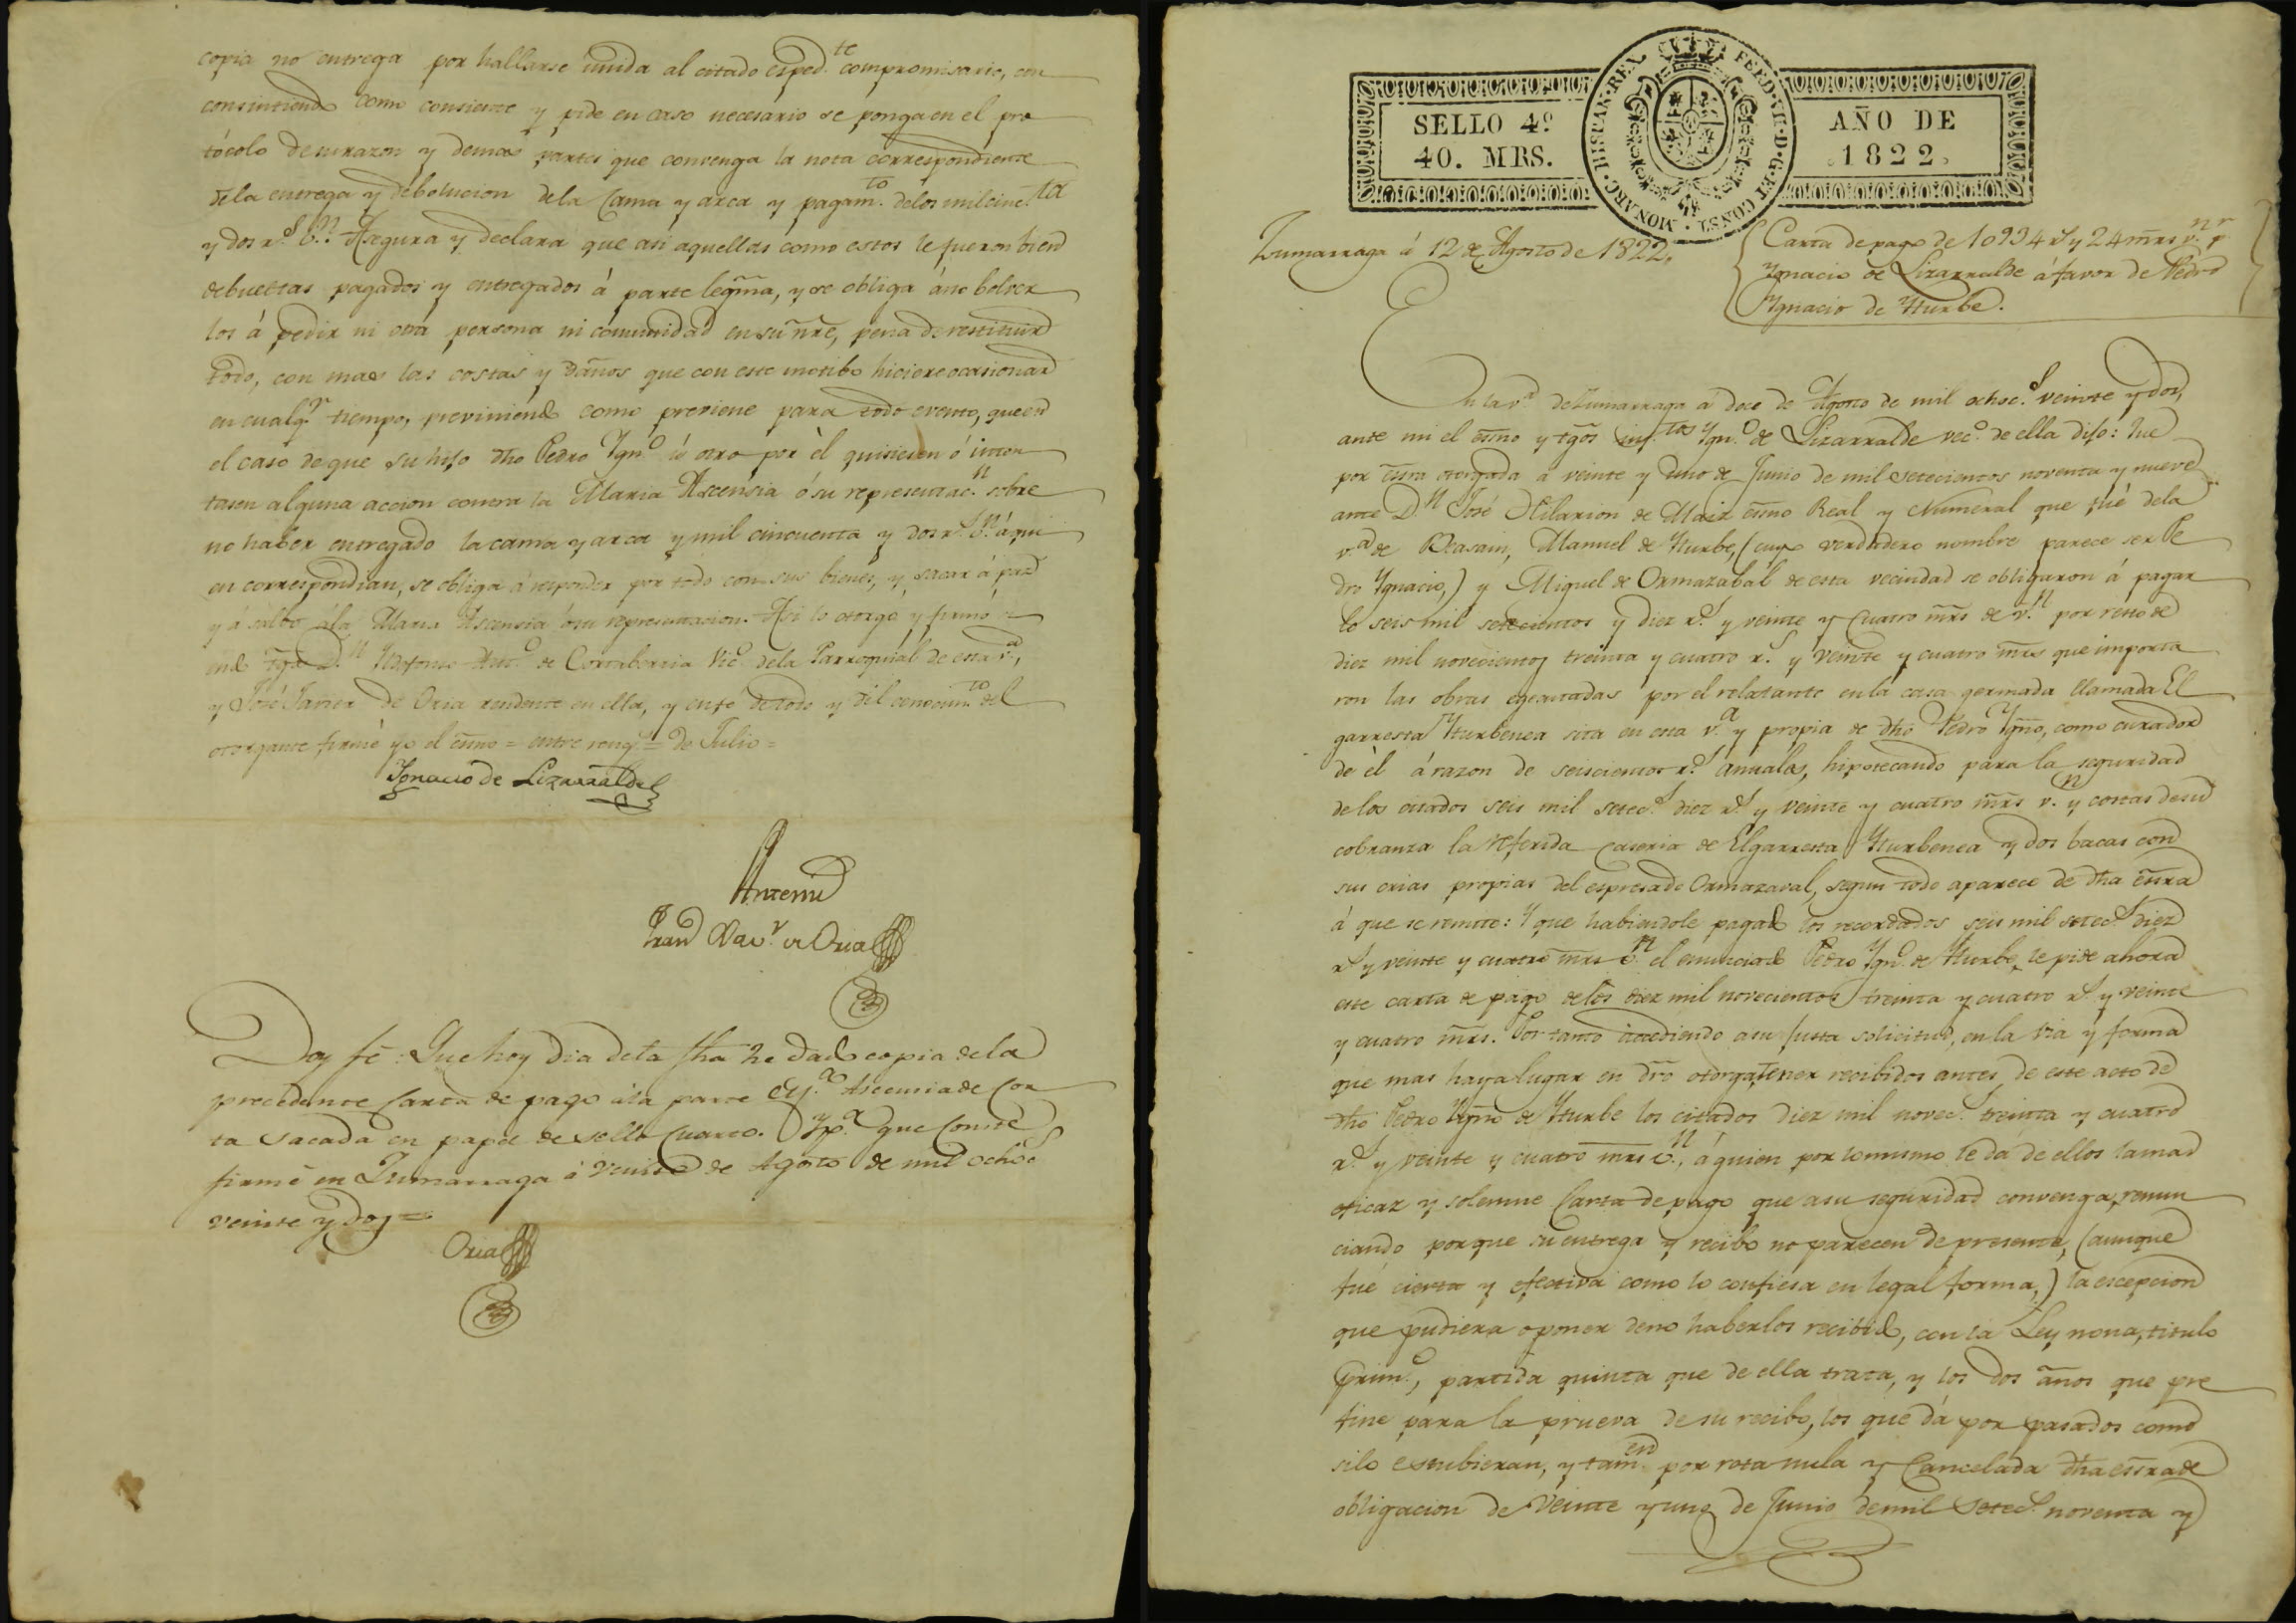 copia no entrega por hallarse unida al citado esped.te compromisario, con
consintiendo como consiente y pide en caso necesario se ponga en el pro
tócolo de su razon y demas partes que convenga la nota correspondiente
de la entrega y debolucion de la Cama y arca y pagam.to de los mil cinc.ta
y dos r.s v.n Asegura y declara que asi aquellas como estos le fueron bien
debueltas pagados y entregados á parte legma, y se obliga á no bolver
los á pedir ni otra persona ni comunidad en su nre, pena de restituir
todo, con mas las costas y daños que con este motibo hiciere ocasionar
en cualq.r tiempo, previniendo como previene para todo evento, que en
el caso de que su hijo dho Pedro Ign.o ú otro por èl quisiesen ó inten
tasen alguna accion contra la Maria Ascensia ó su representac.n sobre
no haber entregado la cama y arca y mil cincuenta y dos r.s v.n á qui
en correspondian, se obliga á responder por todo con sus bienes, y sacar á paz
y á salbo á la Maria Ascensia ó su representacion. Asi lo otorgó y firmó si
endo tgos D.n Ildefonso Ant.o de Cortaberria Vic.o de la Parroquial de esta v.a,
y José Javier de Oria residente en ella, y en fé de todo y del conocim.to del
otorgante firmé yo el esno = entre reng.s = de Julio =
Ignacio de Lizarralde
Antemi
Fran.co Xav.r de Oria
Doy fé: Que hoy dia de la fha he dado copia de la
precedente Carta de pago á la parte M.a Ascensia de Cor
ta sacada en papel de sello cuarto. Y p.a que Conste
firmé en Zumarraga á veinte de Agosto de mil ochoc.s
veinte y dos =
Oria
SELLO 4º
40. MRS.
MONARC · HISPAR · REX · FERD · VII · D · G · ET CONST ·
AÑO DE
1822.
Zumarraga á 12 de Agosto de 1822.
Carta de pago de 10934 r.s y 24 mrs v.n p.r
Ignacio de Lizarralde á favor de Pedro
Ignacio de Yturbe.
En la v.a de Zumarraga á doce de Agosto de mil ochoc.s veinte y dos,
ante mi el esno y tgos inf.tos Ign.o de Lizarralde vec.o de ella dijo: Que
por esra otorgada á veinte y uno de Junio de mil setecientos noventa y nueve
ante D.n José Hilarion de Maiz esno Real y Numeral que fué de la
v.a de Beasain, Manuel de Yturbe, (cuyo verdadero nombre parece ser Pe
dro Ignacio,) y Miguel de Ormazabal de esta vecindad se obligaron á pagar
le seis mil setecientos y diez r.s y veinte y cuatro mrs de v.n por resto de
diez mil novecientos treinta y cuatro r.s y veinte y cuatro mrs que importa
ron las obras egecutadas por el relatante en la casa germada llamada El
garresta Yturbenea sita en esta v.a y propia de dho Pedro Ygno, como curador
de èl á razon de seiscientos r.s anuales, hipotecando para la seguridad
de los citados seis mil setec.s diez r.s y veinte y cuatro mrs v.n y costas de su
cobranza la referida caseria de Elgarresta Yturbenea y dos bacas con
sus crias propias del espresado Ormazaval, segun todo aparece de dha esra
á que se remite: Y que habiendole pagado los recordados seis mil setec.s diez
r.s y veinte y cuatro mrs v.n el enunciado Pedro Ign.o de Yturbe, le pide ahora
este carta de pago de los diez mil novecientos treinta y cuatro r.s y veinte
y cuatro mrs. Por tanto accediendo a su justa solicitud, en la via y forma
que mas haya lugar en dro otorga tener recibidos antes de este acto de
dho Pedro Ygno de Yturbe los citados diez mil novec.s treinta y cuatro
r.s y veinte y cuatro mrs v.n, á quien por lo mismo le da de ellos la mas
eficaz y solemne Carta de pago que a su seguridad convenga, renun
ciando porque su entrega y recibo no parecen de presente, (aunque
fué cierta y efectiva como lo confiesa en legal forma,) la escepcion
que pudiera oponer de no haberlos recibido, con la Ley nona, titulo
prim.o, partida quinta que de ella trata, y los dos años que pre
fine para la prueva de su recibo, los que dá por pasados como
si lo estubieran, y tam.en por rota nula y Cancelada dha esra de
obligacion de veinte y uno de Junio de mil setec.s noventa y